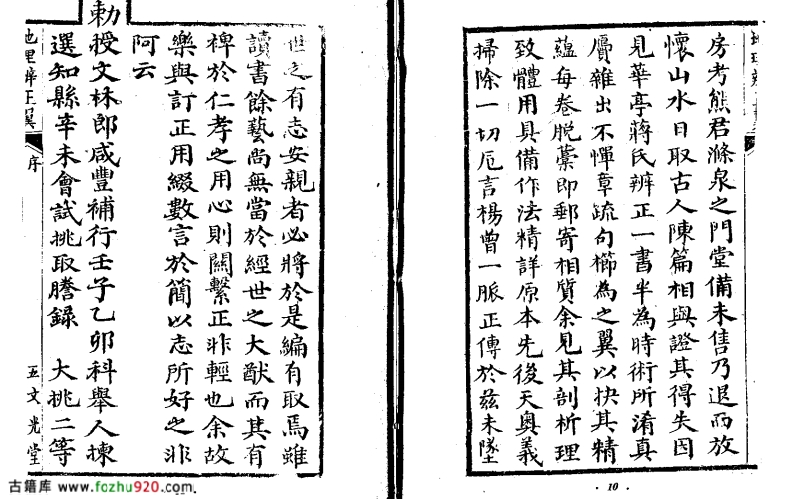 房考熊君滌泉之門堂備未售乃退而放
懷山水日取古人陳篇相與證其得失因
見華亭蔣氏辨正一書半為時術所淆真
贗雜出不憚章疏句櫛為之翼以抉其精
蘊每卷脫藁即郵寄相質余見其剖析理
致體用具備作法精詳原本先後天奧義
掃除一切厄言楊曾一脈正傳於茲未墜
· 10 ·
世之有志安親者必將於是編有取焉雖
讀書餘藝尚無當於經世之大猷而其有
裨於仁孝之用心則關繫正非輕也余故
樂與訂正用綴數言於簡以志所好之非
阿云
勅授文林郎咸豐補行壬子乙卯科舉人揀
選知縣辛未會試挑取謄錄 大挑二等
地理辨正翼 序 五文光堂
古籍库 www.fozhu920.com